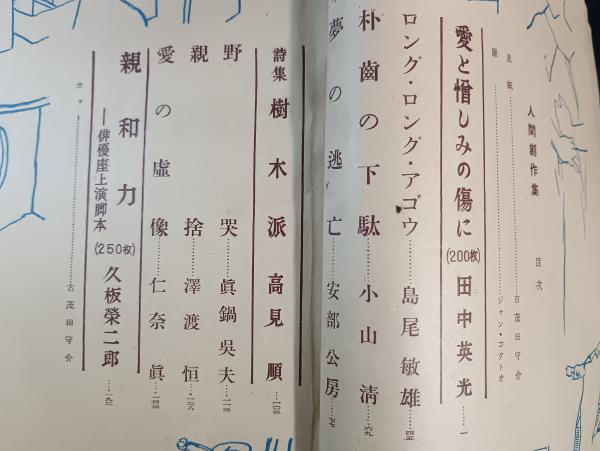 人間創作集 目次
表紙……古茂田守介
扉……ジャン・コクトオ
愛と憎しみの傷に(200枚)田中英光……一
ロング・ロング・アゴウ……島尾敏雄……四五
朴歯の下駄……小山清……六九
夢の逃亡……安部公房……七七
詩集 樹木派 高見順……一〇三
野哭……眞鍋吳夫……一二三
親捨……澤渡恒……一三八
愛の虛像……仁奈眞……一四三
親和力
―俳優座上演脚本(250枚)久板榮二郎……一九三
カット……古茂田守介